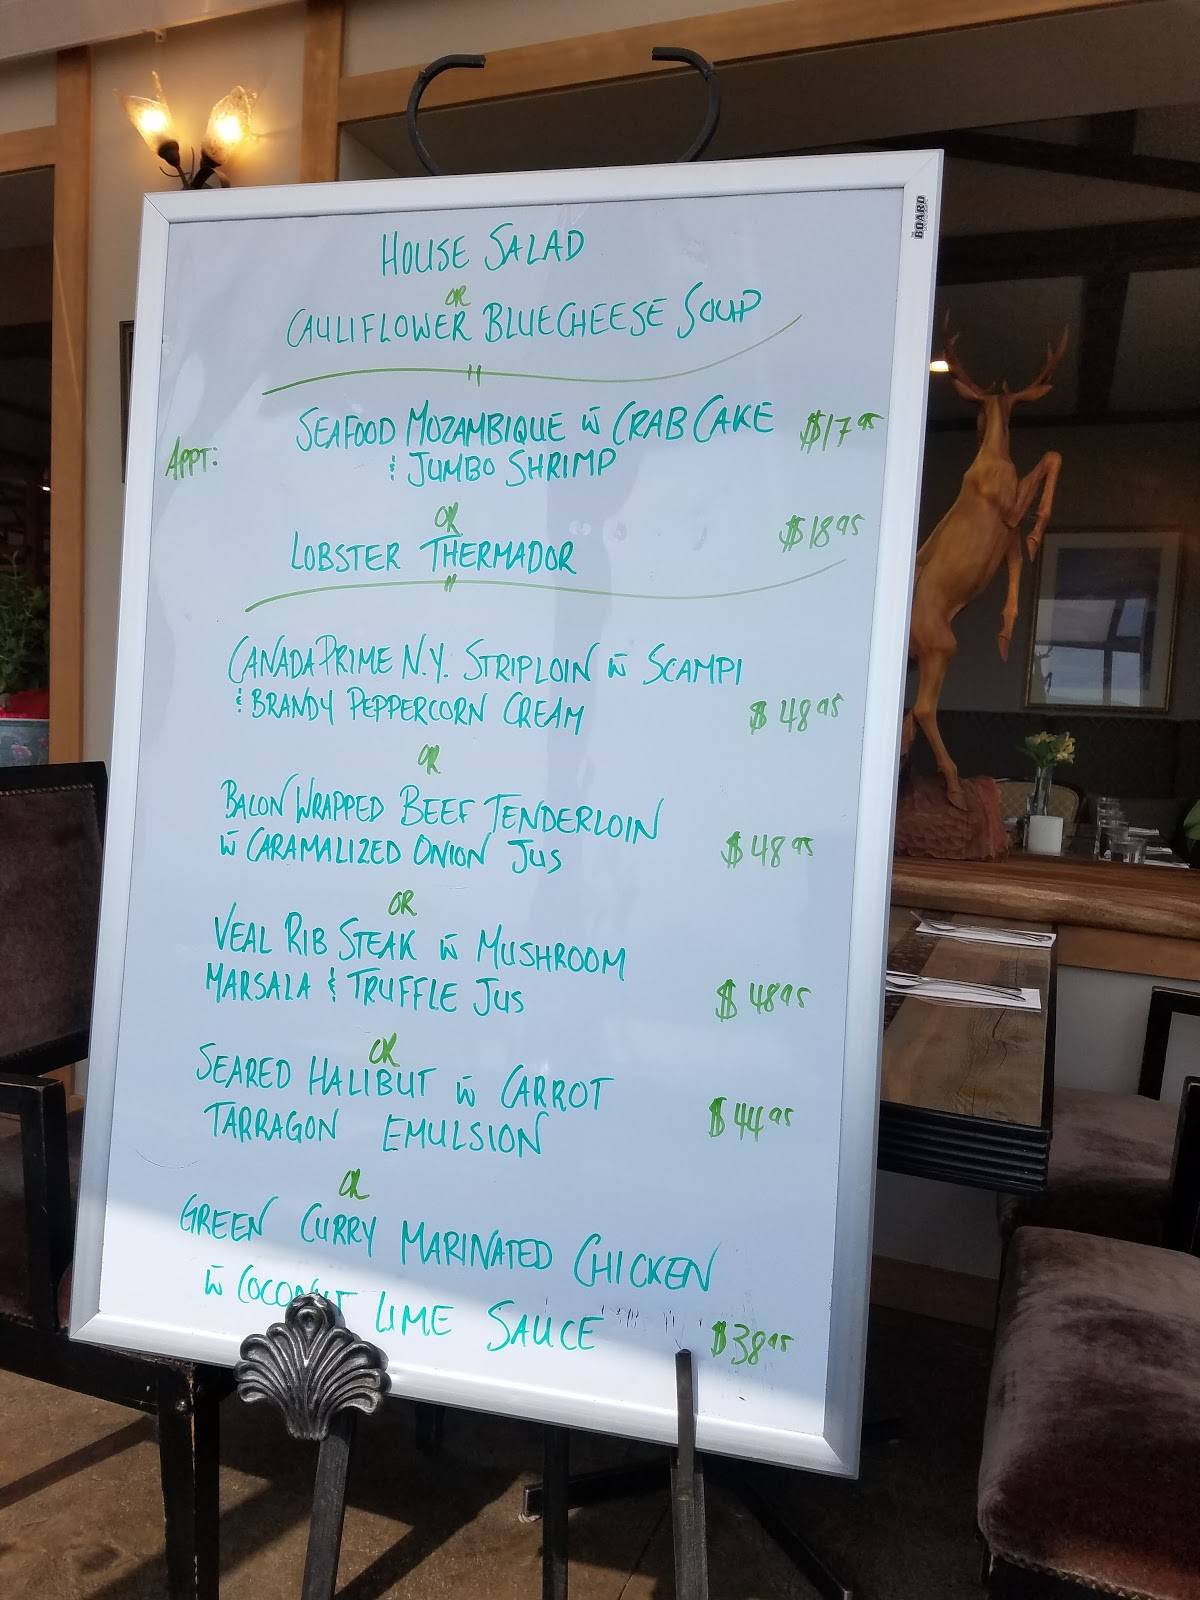 HOUSE SALAD
OR
CAULIFLOWER BLUECHEESE SOUP
APPT: SEAFOOD MOZAMBIQUE w̄ CRAB CAKE $17.95
& JUMBO SHRIMP
OR
LOBSTER THERMADOR $18.95
CANADA PRIME N.Y. STRIPLOIN w̄ SCAMPI
& BRANDY PEPPERCORN CREAM $48.95
OR
BACON WRAPPED BEEF TENDERLOIN
w̄ CARAMALIZED ONION JUS $48.95
OR
VEAL RIB STEAK w̄ MUSHROOM
MARSALA & TRUFFLE JUS $48.95
OR
SEARED HALIBUT w̄ CARROT
TARRAGON EMULSION $44.95
OR
GREEN CURRY MARINATED CHICKEN
w̄ COCONUT LIME SAUCE $38.95
BOARD